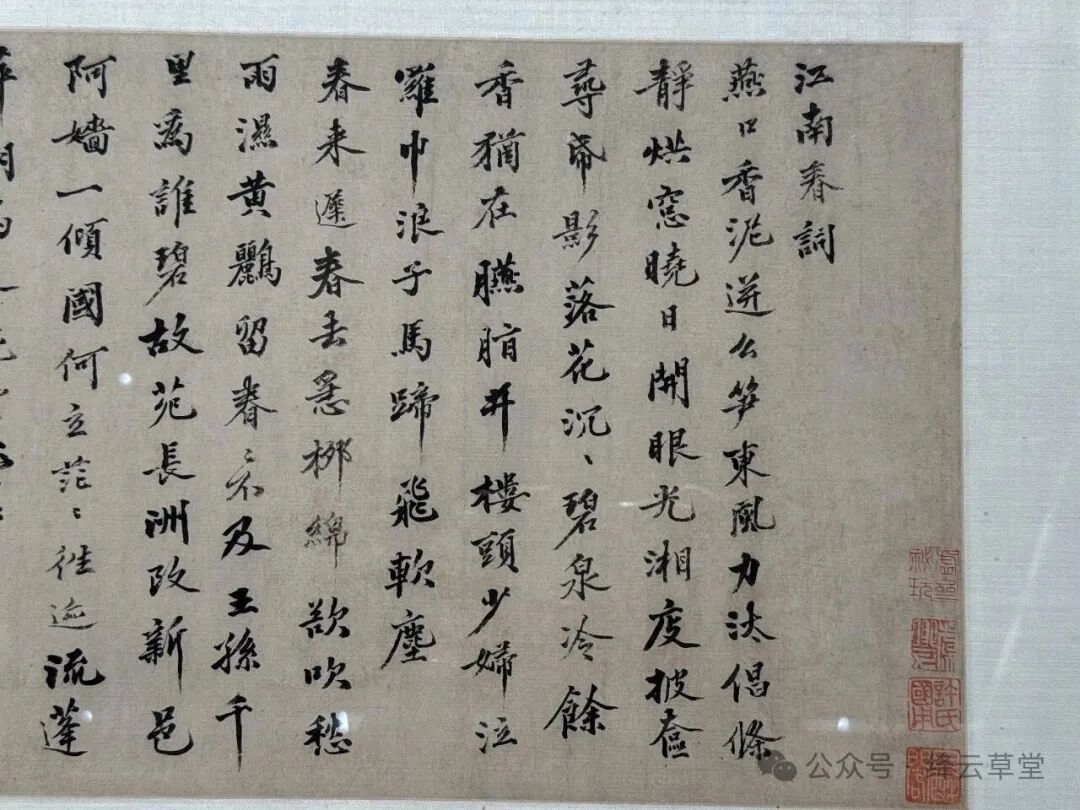 江南春詞
燕口香泥迸幺笋東風力汰倡條
靜烘窓曉日開眼光湘度披奩
尋影落花沉〻碧泉冷餘
香猶在臙脂井樓頭少婦泣
羅巾浪子馬蹄飛軟塵
春来遲春去急柳綿欲吹愁
雨濕黄鸝留春〻不及王孫千
里為誰碧故苑長洲改新邑
阿嬙一傾國何立茫〻往迹流蓬
公众号·绛云草堂